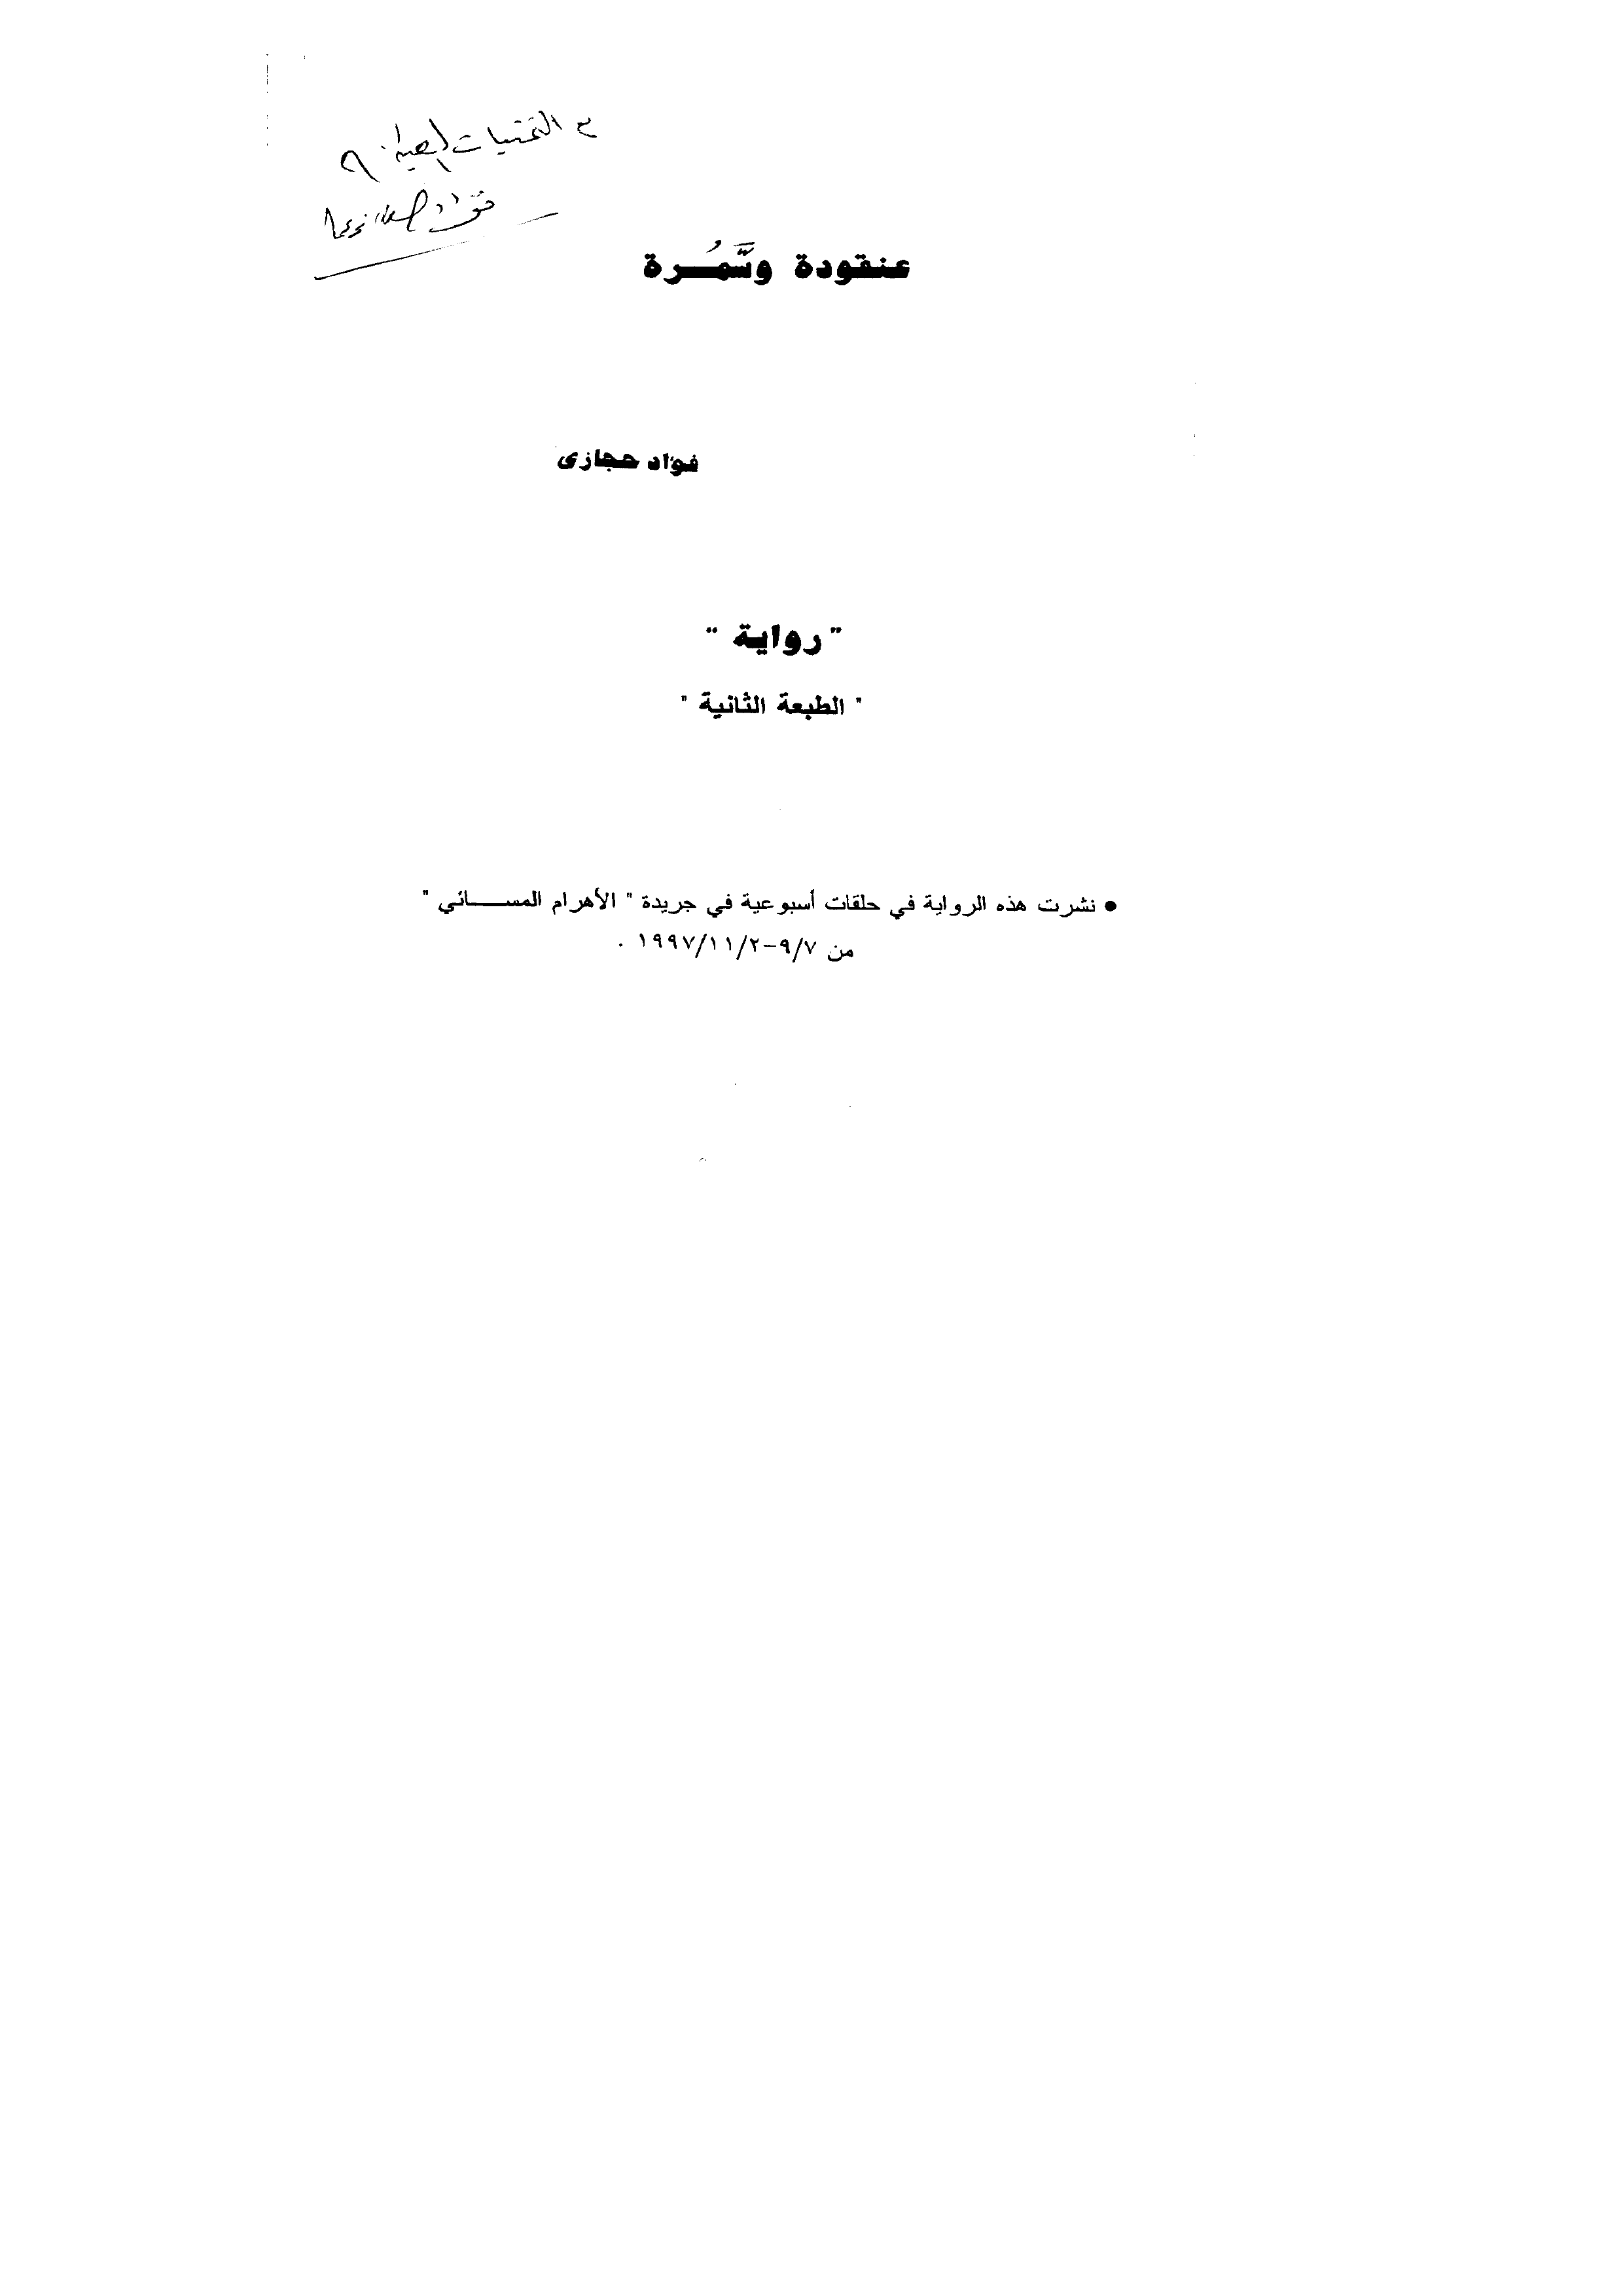 مع التمنيات الطيبة.
فؤاد حجازى
عنقودة وسَّمُـرة
فؤاد حجازى
" رواية "
" الطبعة الثانية "
● نشرت هذه الرواية في حلقات أسبوعية في جريدة " الأهرام المســـائي "
من ٩/٧-١٩٩٧/١١/٢ .